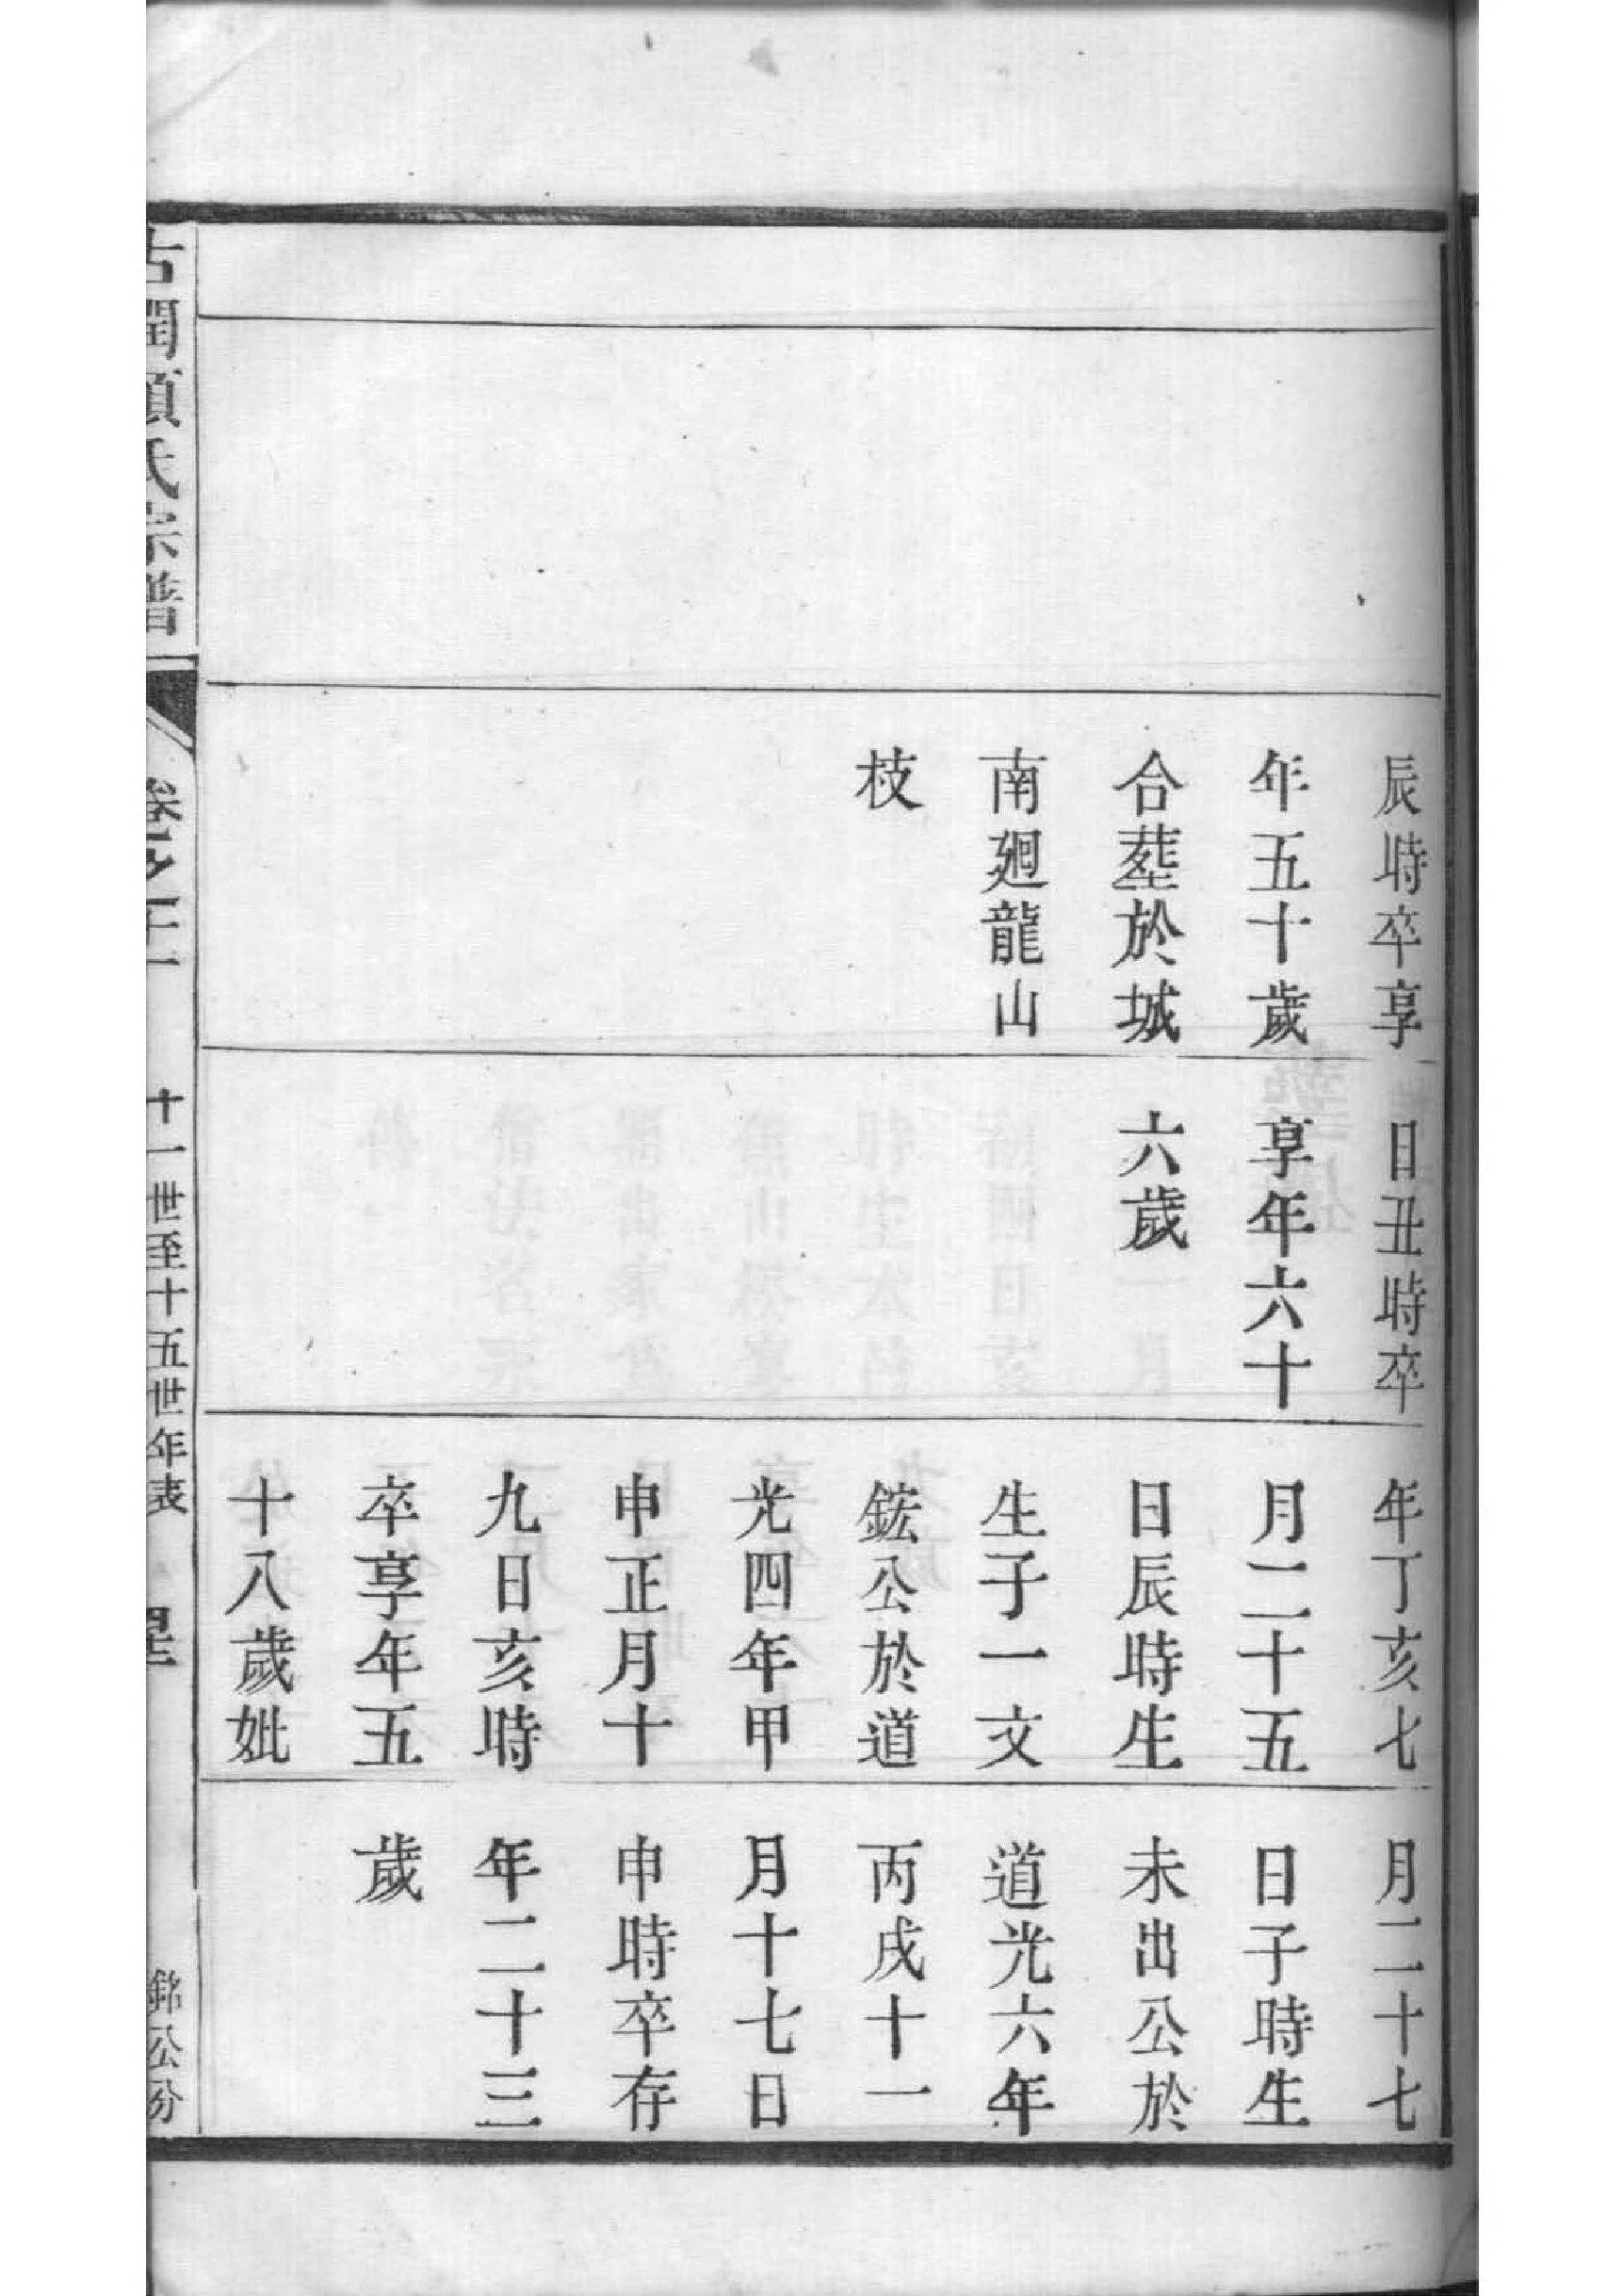 辰時卒享
年五十歲
合塟於城
南廻龍山
枝
日丑時卒
享年六十
六歲
年丁亥七
月二十五
日辰時生
生子一文
鋐公於道
光四年甲
申正月十
九日亥時
卒享年五
十八歲妣
月二十七
日子時生
未出公於
道光六年
丙戌十一
月十七日
申時卒存
年二十三
歲
古潤氏宗譜
卷之
十一世至十五世年表
銘公分